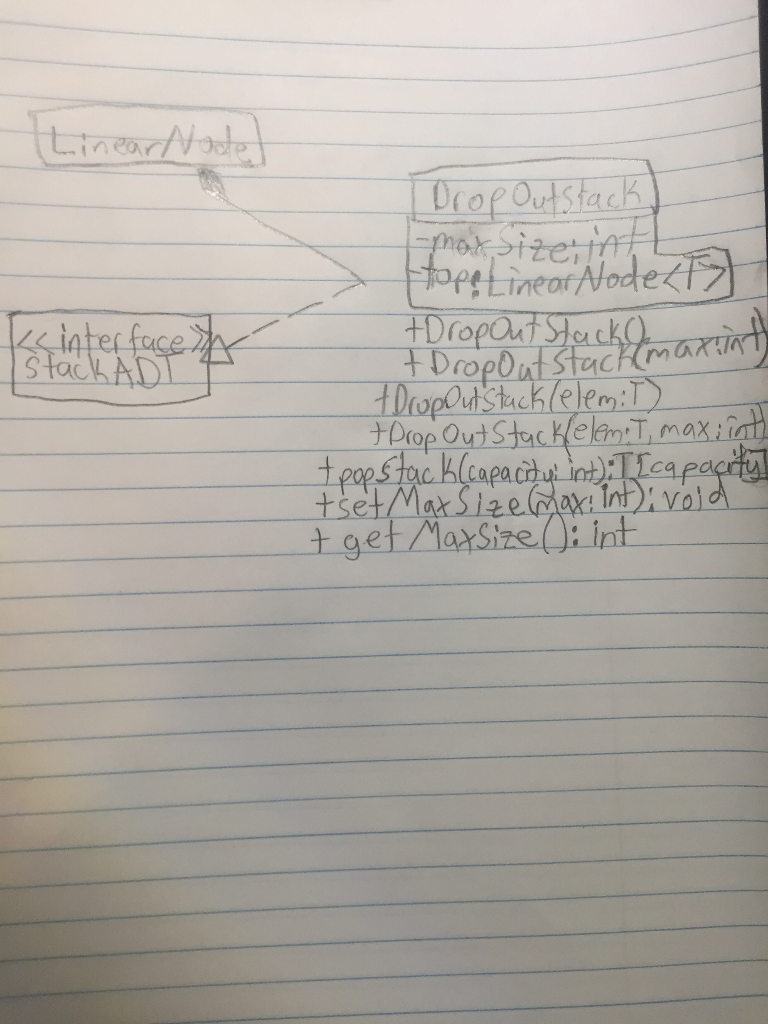 LinearNode
DropOutStack
-maxSize: int
-top: LinearNode<T>
<<interface>>
StackADT
+DropOutStack()
+DropOutStack(max:int)
+DropOutStack(elem:T)
+DropOutStack(elem:T, max:int)
+popStack(capacity: int):T[capacity]
+setMaxSize(max: int): void
+ getMaxSize(): int